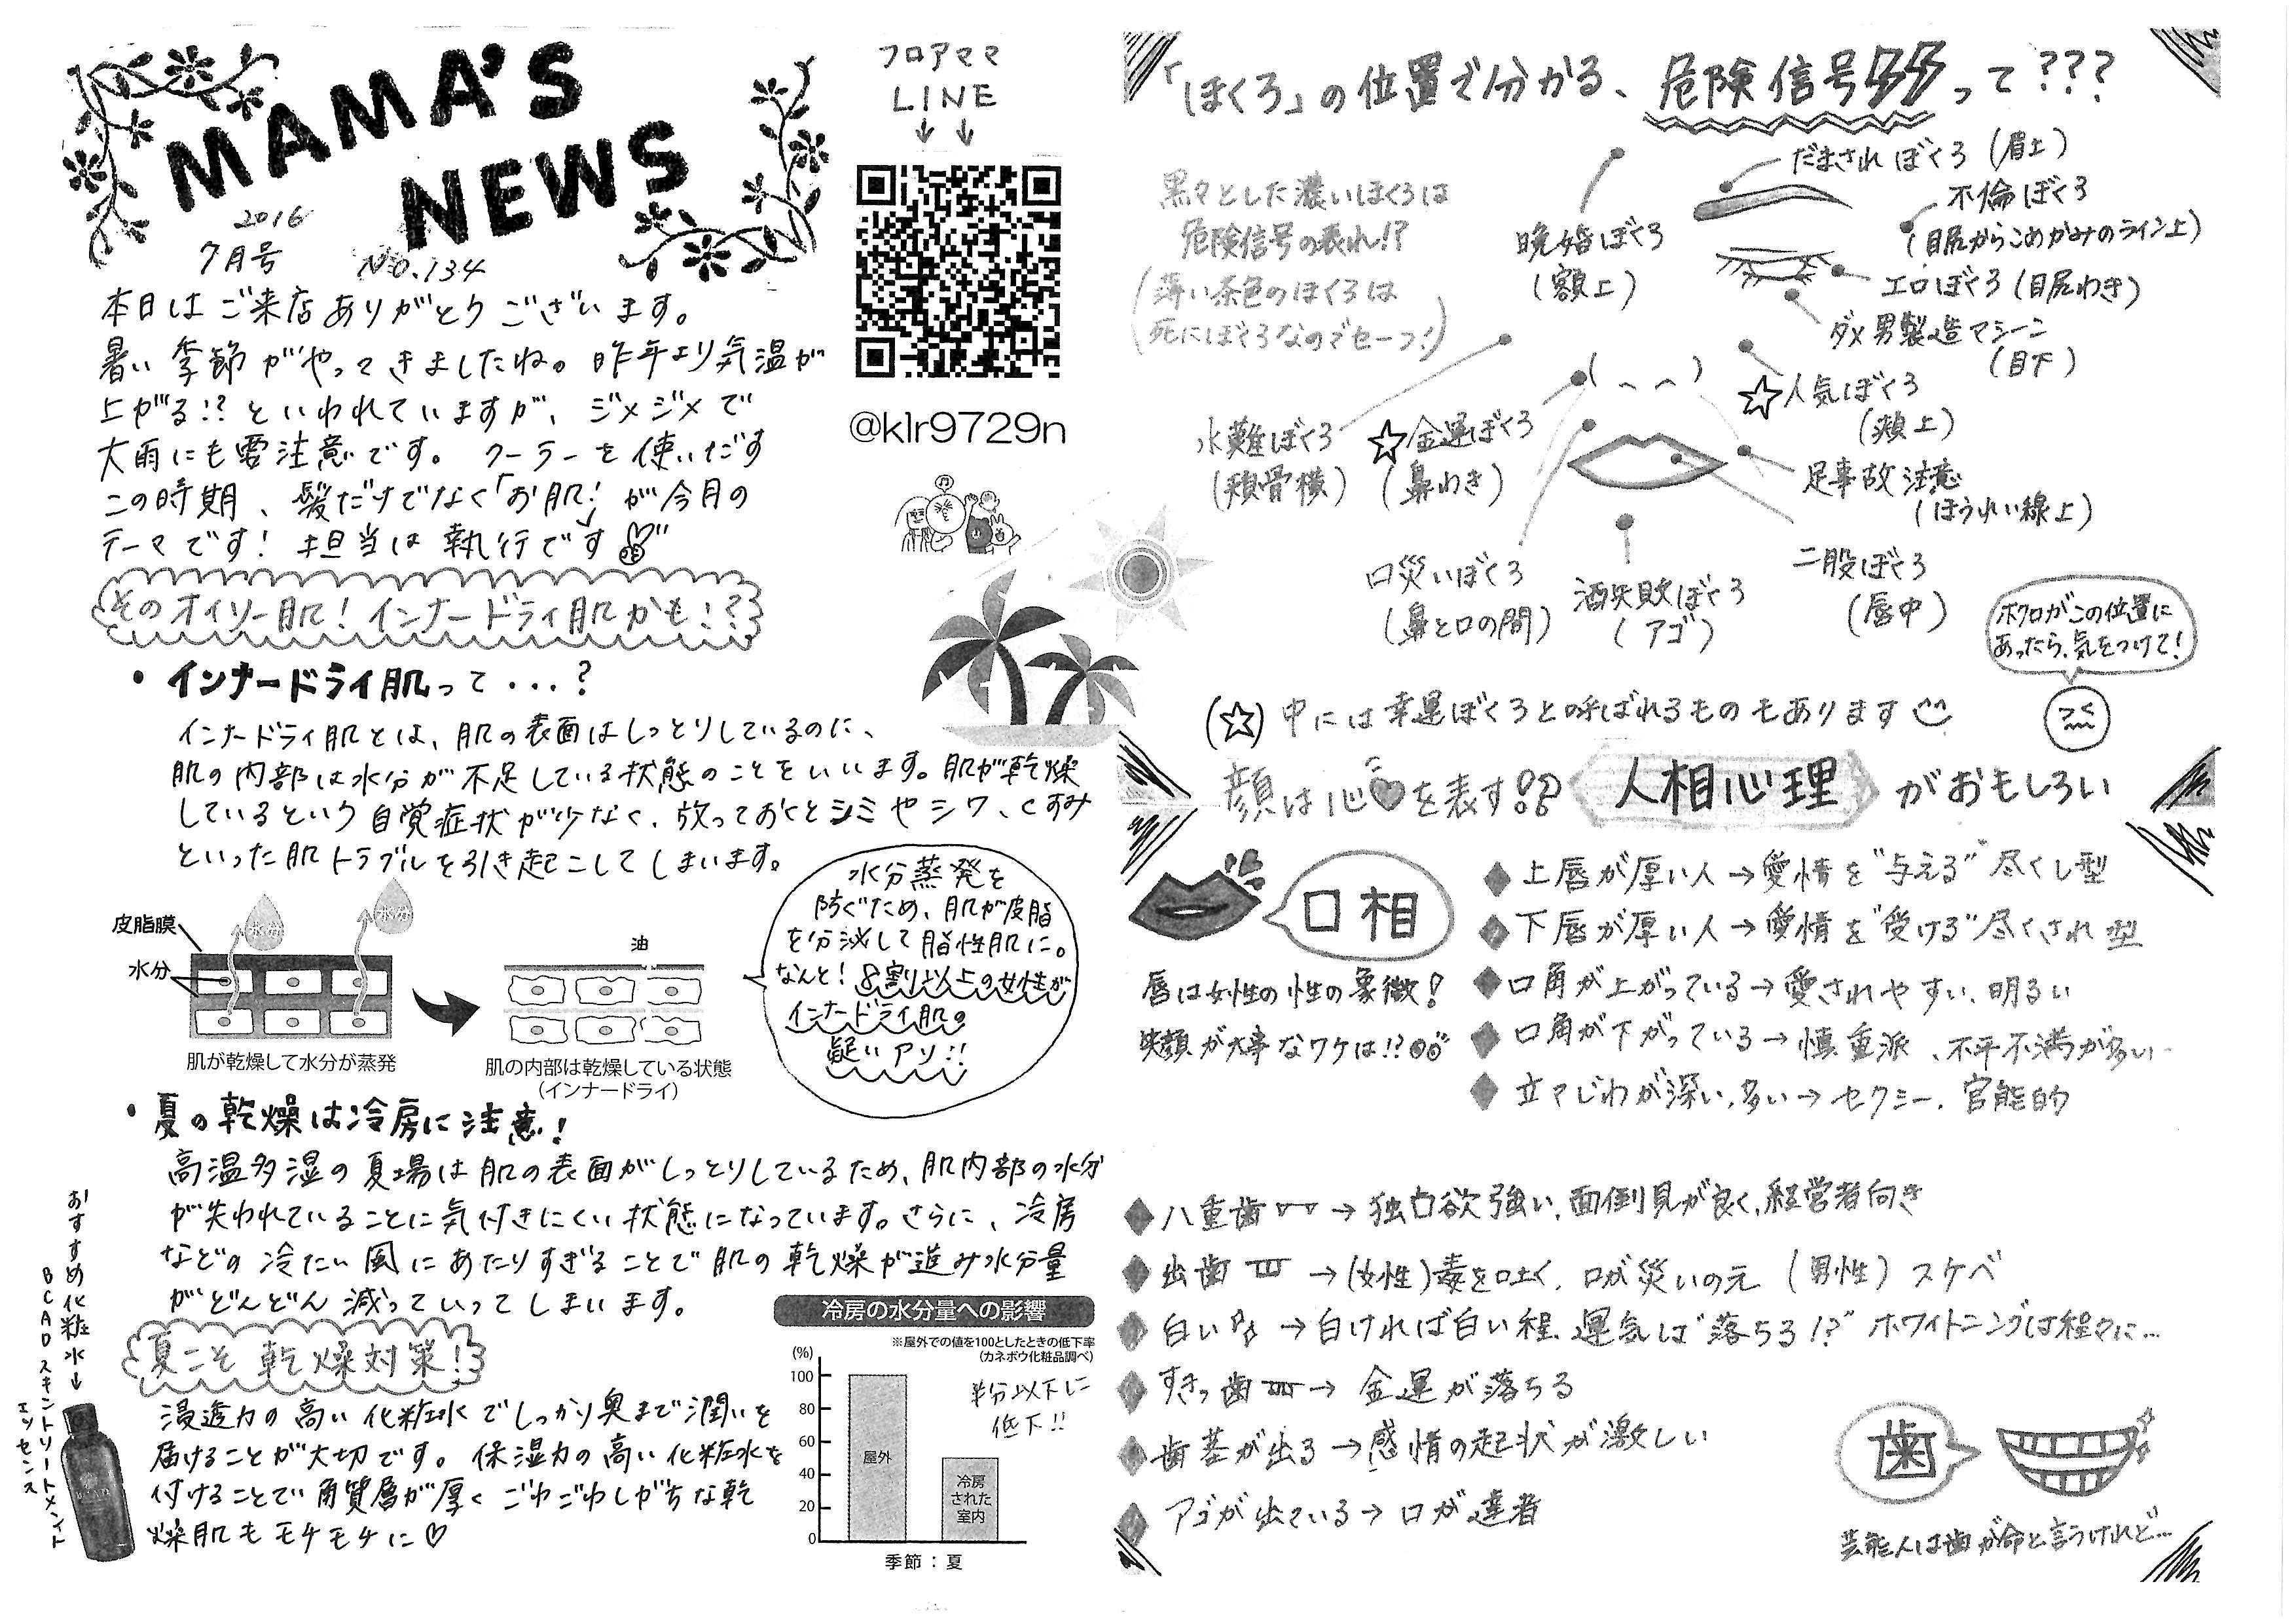 MAMA'S
NEWS
2016
7月号 No.134
フロアママ
LINE
@klr9729n
本日はご来店ありがとうございます。
暑い季節がやってきましたね。昨年より気温が
上がる!?といわれていますが、ジメジメで
大雨にも要注意です。クーラーを使いだす
この時期、髪だけでなく「お肌!」が今月の
テーマです!担当は執行です
そのオイリー肌!インナードライ肌かも!?
・インナードライ肌って...?
インナードライ肌とは、肌の表面はしっとりしているのに、
肌の内部は水分が不足している状態のことをいいます。肌が乾燥
しているという自覚症状が少なく、放っておくとシミやシワ、くすみ
といった肌トラブルを引き起こしてしまいます。
皮脂膜
水分
水分
水分
肌が乾燥して水分が蒸発
油
肌の内部は乾燥している状態
(インナードライ)
水分蒸発を
防ぐため、肌が皮脂
を分泌して脂性肌に。
なんと!8割以上の女性が
インナードライ肌の
疑いアリ!!
・夏の乾燥は冷房に注意!
高温多湿の夏場は肌の表面がしっとりしているため、肌内部の水分
が失われていることに気付きにくい状態になっています。さらに、冷房
などの冷たい風にあたりすぎることで肌の乾燥が進み水分量
がどんどん減っていってしまいます。
夏こそ乾燥対策!
浸透力の高い化粧水でしっかり奥まで潤いを
届けることが大切です。保湿力の高い化粧水を
付けることで角質層が厚くごわごわしがちな乾
燥肌もモチモチに♡
おすすめ化粧水↓
BCADスキントリートメント
エッセンス
冷房の水分量への影響
※屋外での値を100としたときの低下率
(カネボウ化粧品調べ)
(%)
100
80
60
40
20
0
屋外
冷房
された
室内
半分以下に
低下!!
季節:夏
「ほくろ」の位置で分かる、危険信号って???
黒々とした濃いほくろは
危険信号の表れ!?
(薄い茶色のほくろは
死にぼくろなのでセーフ!)
だまされぼくろ(眉上)
不倫ぼくろ
(目尻からこめかみのライン上)
晩婚ぼくろ
(額上)
エロぼくろ(目尻わき)
ダメ男製造マシーン
(目下)
☆人気ぼくろ
(頬上)
水難ぼくろ
(頬骨横)
☆金運ぼくろ
(鼻わき)
足事故注意
(ほうれい線上)
口災いぼくろ
(鼻と口の間)
酒失敗ぼくろ
(アゴ)
二股ぼくろ
(唇中)
ホクロがこの位置に
あったら、気をつけて!
(☆)中には幸運ぼくろと呼ばれるものもあります
顔は心を表す!?人相心理がおもしろい
口相
唇は女性の性の象徴!
笑顔が大事なワケは!?
◆上唇が厚い人→愛情を"与える"尽くし型
◆下唇が厚い人→愛情を"受ける"尽くされ型
◆口角が上がっている→愛されやすい、明るい
◆口角が下がっている→慎重派、不平不満が多い
◆立てじわが深い、多い→セクシー、官能的
◆八重歯→独占欲強い、面倒見が良く、経営者向き
◆出歯→(女性)毒を吐く、口が災いの元(男性)スケベ
◆白い→白ければ白い程、運気は"落ちる!?"ホワイトニングは程々に…
◆すきっ歯→金運が落ちる
◆歯茎が出る→感情の起状が激しい
◆アゴが出ている→口が達者
歯
芸能人は歯が命と言うけれど…